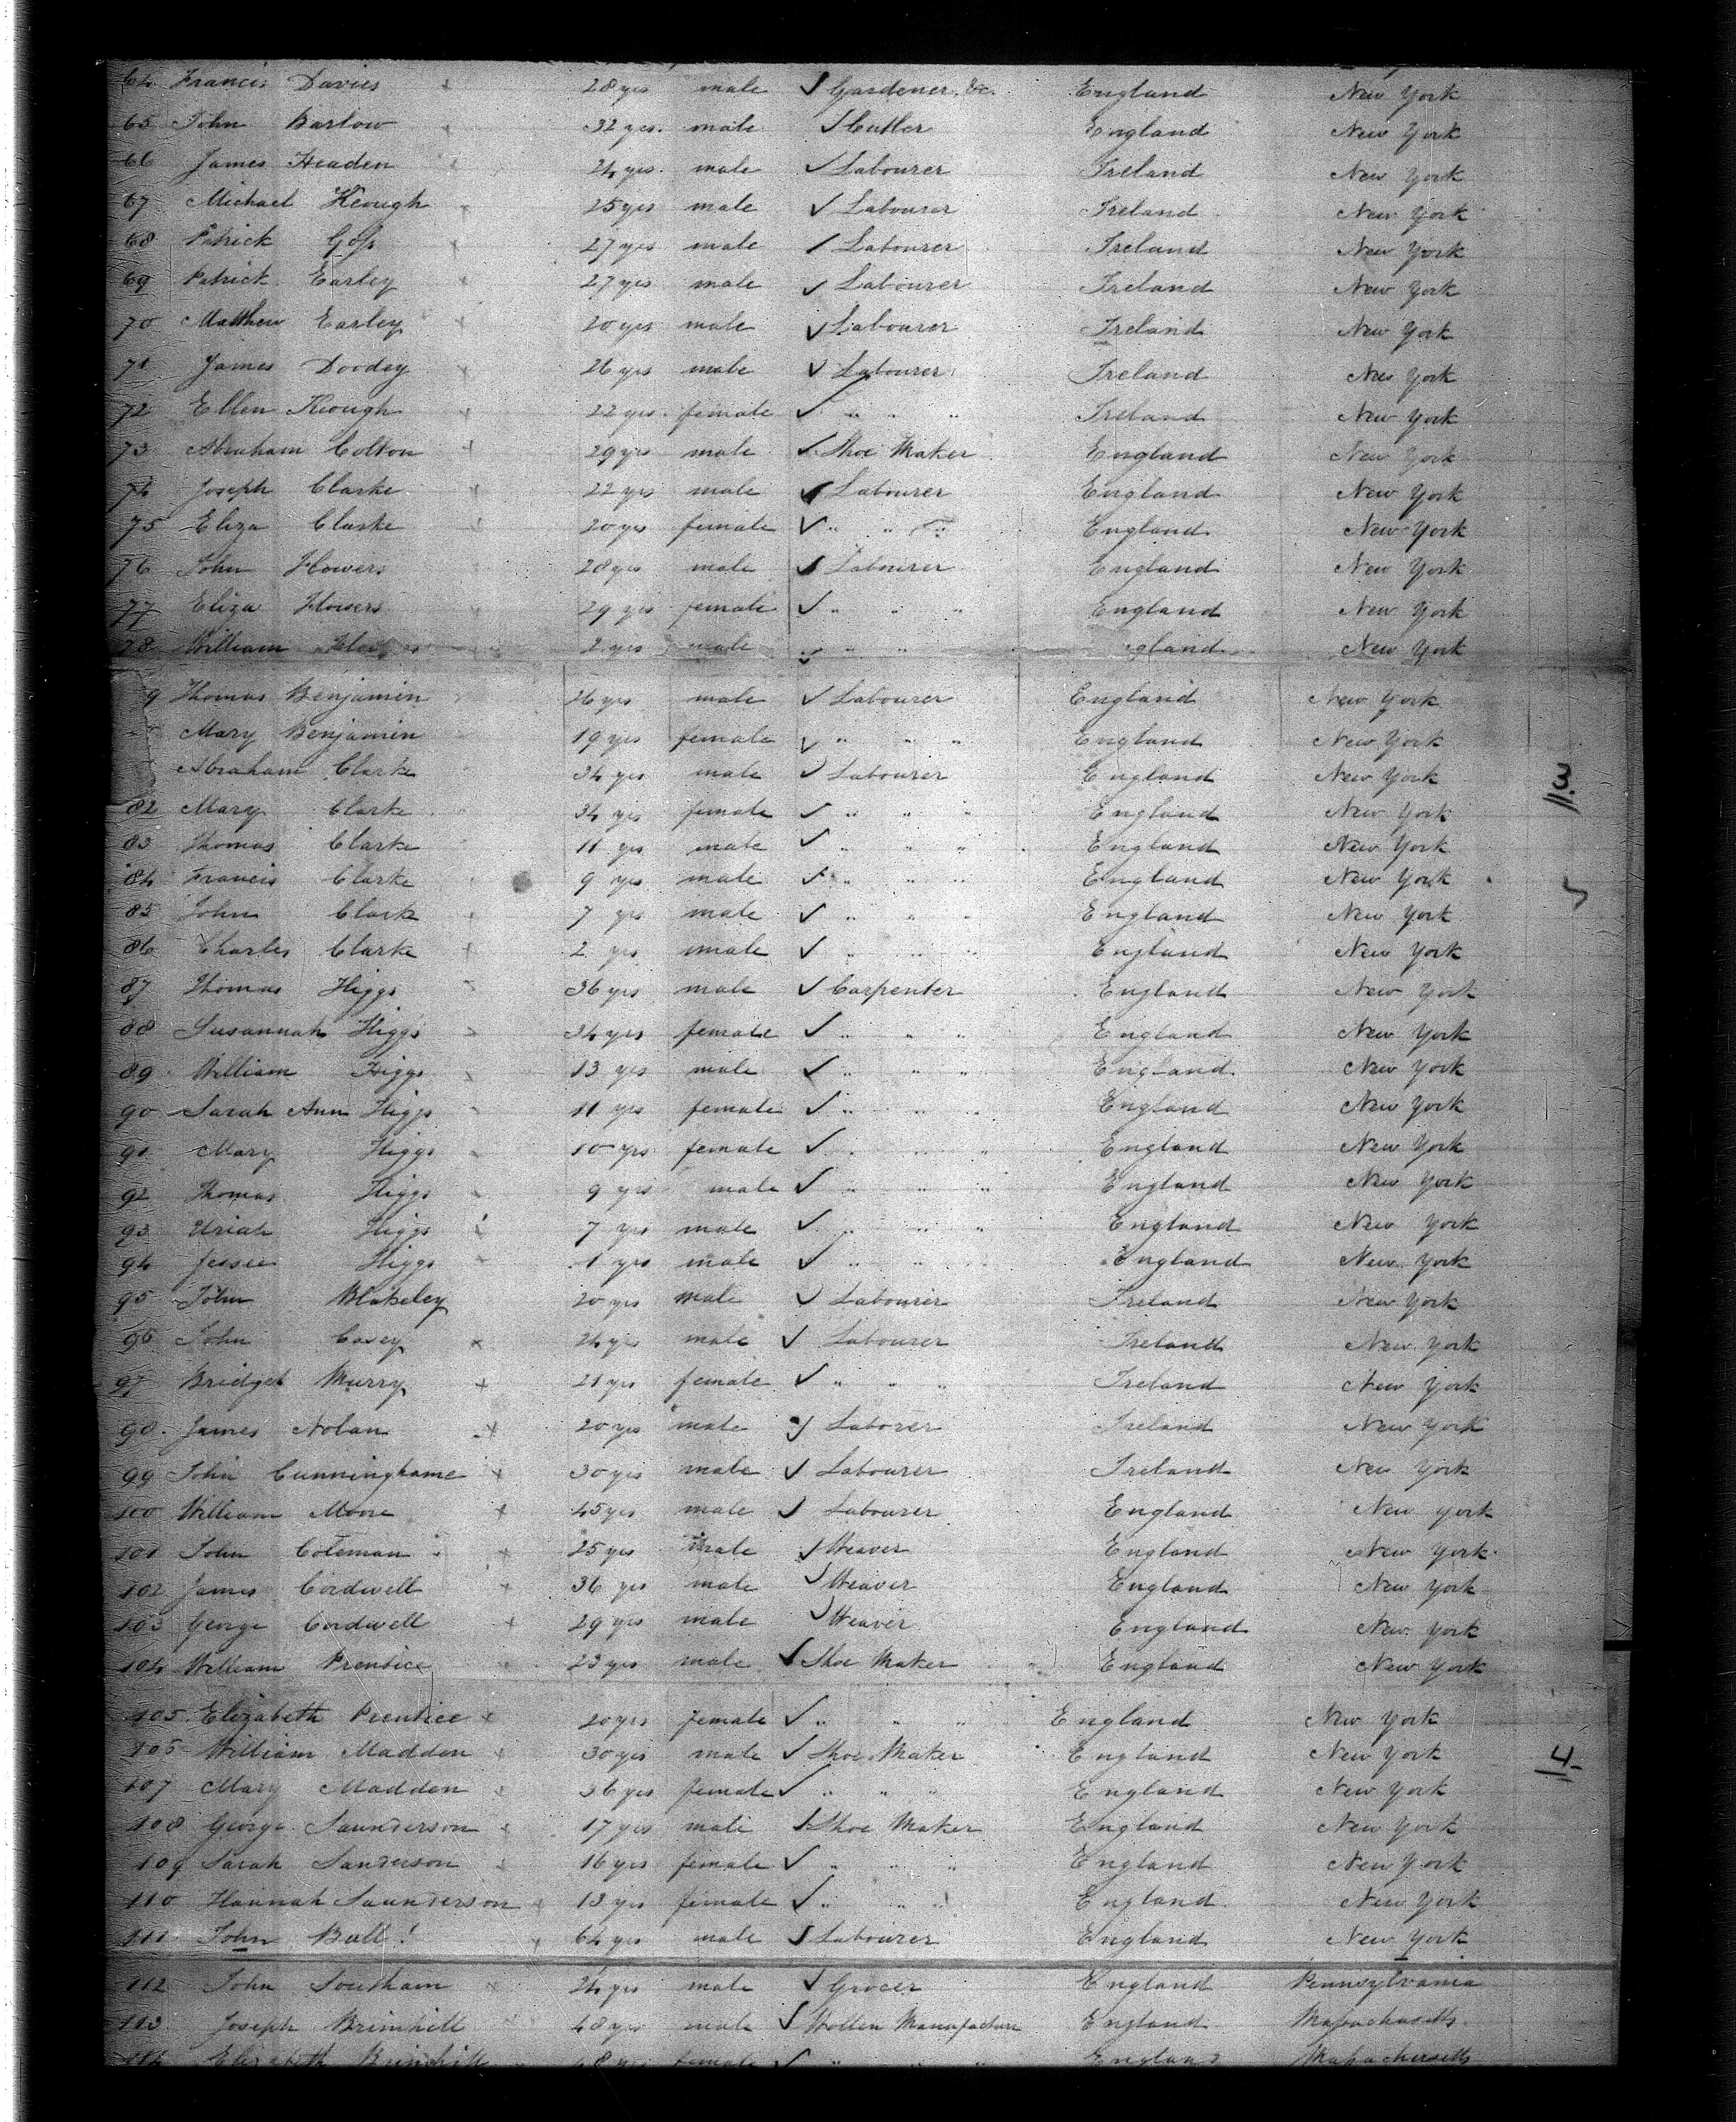 64 Francis Davies 28 yrs male Gardener &c. England New York
65 John Barlow 32 yrs. male Cutler England New York
66 James Headen 24 yrs. male Labourer Ireland New York
67 Michael Keough 25 yrs male Labourer Ireland New York
68 Patrick Goss 27 yrs male Labourer Ireland New York
69 Patrick Earley 27 yrs male Labourer Ireland New York
70 Matthew Earley 20 yrs male Labourer Ireland New York
71 James Doodey 26 yrs male Labourer Ireland New York
72 Ellen Keough 22 yrs. female " " " Ireland New York
73 Abraham Colton 29 yrs male Shoe Maker England New York
74 Joseph Clarke 22 yrs male Labourer England New York
75 Eliza Clarke 20 yrs female " " " England New York
76 John Flowers 28 yrs male Labourer England New York
77 Eliza Flowers 29 yrs female " " " England New York
78 William 2 yrs male " " " gland New York
9 Thomas Benjamin 26 yrs male Labourer England New York
Mary Benjamin 19 yrs female " " " England New York
Abraham Clarke 34 yrs male Labourer England New York
3
82 Mary Clarke 34 yrs female " " " England New York
83 Thomas Clarke 11 yrs male " " " England New York
84 Francis Clarke 9 yrs male " " " England New York
85 John Clark 7 yrs male " " " England New York
86 Charles Clarke 2 yrs male " " " England New York
87 Thomas Higgs 36 yrs male Carpenter England New York
88 Susannah Higgs 34 yrs female " " " England New York
89 William Higgs 13 yrs male " " " England New York
90 Sarah Ann Higgs 11 yrs female " " " England New York
91 Mary Higgs 10 yrs female " " " England New York
92 Thomas Higgs 9 yrs male " " " England New York
93 Uriah Higgs 7 yrs male " " " England New York
94 Jessee Higgs 1 yrs male " " " England New York
95 John Blakeley 20 yrs male Labourer Ireland New York
96 John Casey 24 yrs male Labourer Ireland New York
97 Bridget Murry 21 yrs female " " " Ireland New York
98. James Nolan 20 yrs male Laborer Ireland New York
99 John Cunninghame 30 yrs male Labourer Ireland New York
100 William Moore 45 yrs male Labourer England New York
101 John Coleman 25 yrs male Weaver England New York
102 James Cordwell 36 yrs male Weaver England New York
103 George Cordwell 29 yrs male Weaver England New York
104 William Prentice 23 yrs male Shoe Maker England New York
105. Elizabeth Prentice 20 yrs female " " " England New York
105 William Madden 30 yrs male Shoe Maker England New York
4
107 Mary Madden 36 yrs female " " " England New York
108 George Saunderson 17 yrs male Shoe Maker England New York
109 Sarah Sanderson 16 yrs female " " " England New York
110 Hannah Saunderson 13 yrs female " " " England New York
111 John Ball! 64 yrs male Labourer England New York
112 John Southam 24 yrs male Grocer England Pennsylvania
113 Joseph Brimhill 48 yrs male Wollen Manufacture England Massachusetts
114 Elizabeth Brimhill 48 yrs female England Massachusetts